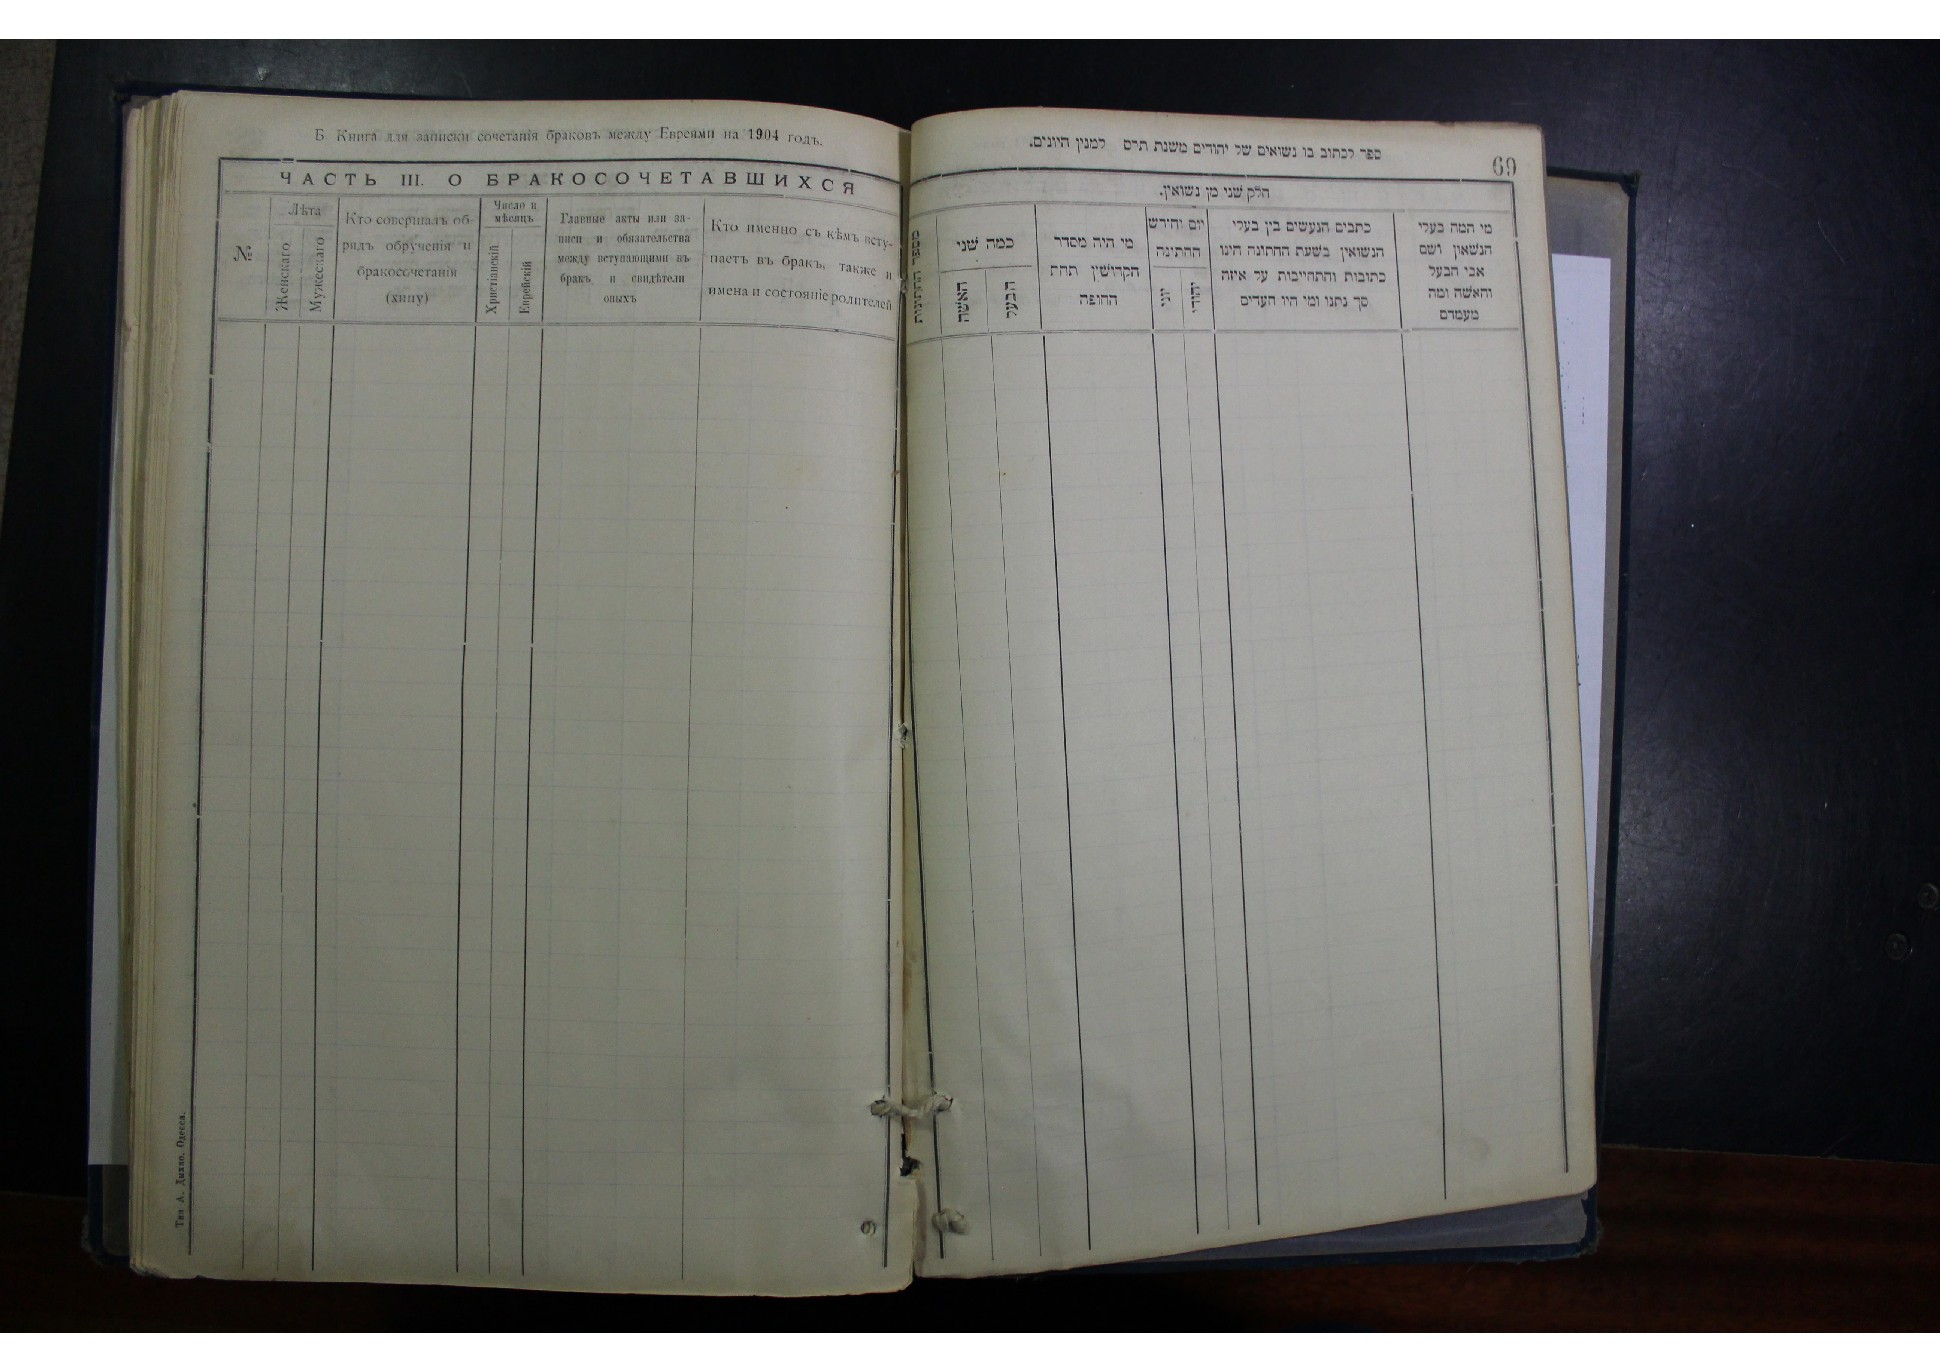 Б Книга для записки сочетанія браковъ между Евреями на 1904 годъ.
ЧАСТЬ III. О БРАКОСОЧЕТАВШИХСЯ
№
Лѣта
Женскаго
Мужескаго
Кто совершалъ об-
рядъ обрученія и
бракосочетанія
(хипу)
Число и
мѣсяцъ
Христіанскій
Еврейскій
Главные акты или за-
писи и обязательства
между вступающими въ
бракъ и свидѣтели
оныхъ
Кто именно съ кѣмъ всту-
паетъ въ бракъ, также и
имена и состояніе родителей
Тип А. Дыхно, Одесса.
69
ספר לכתוב בו נשואים של יהודים משנת תרס למנין היונים.
חלק שני מן נשואין.
מספר החתונות
כמה שני
האשה
הבעל
מי היה מסדר
הקדושין תחת
החופה
יום וחודש
החתונה
יוני
יהודי
כתבים הנעשים בין בעלי
הנשואין בשעת החתונה היגו
כתובות והתחייבות על איזה
סך נתנו ומי היו העדים
מי המה בעלי
הנשואן ושם
אבי הבעל
והאשה ומה
מעמדם